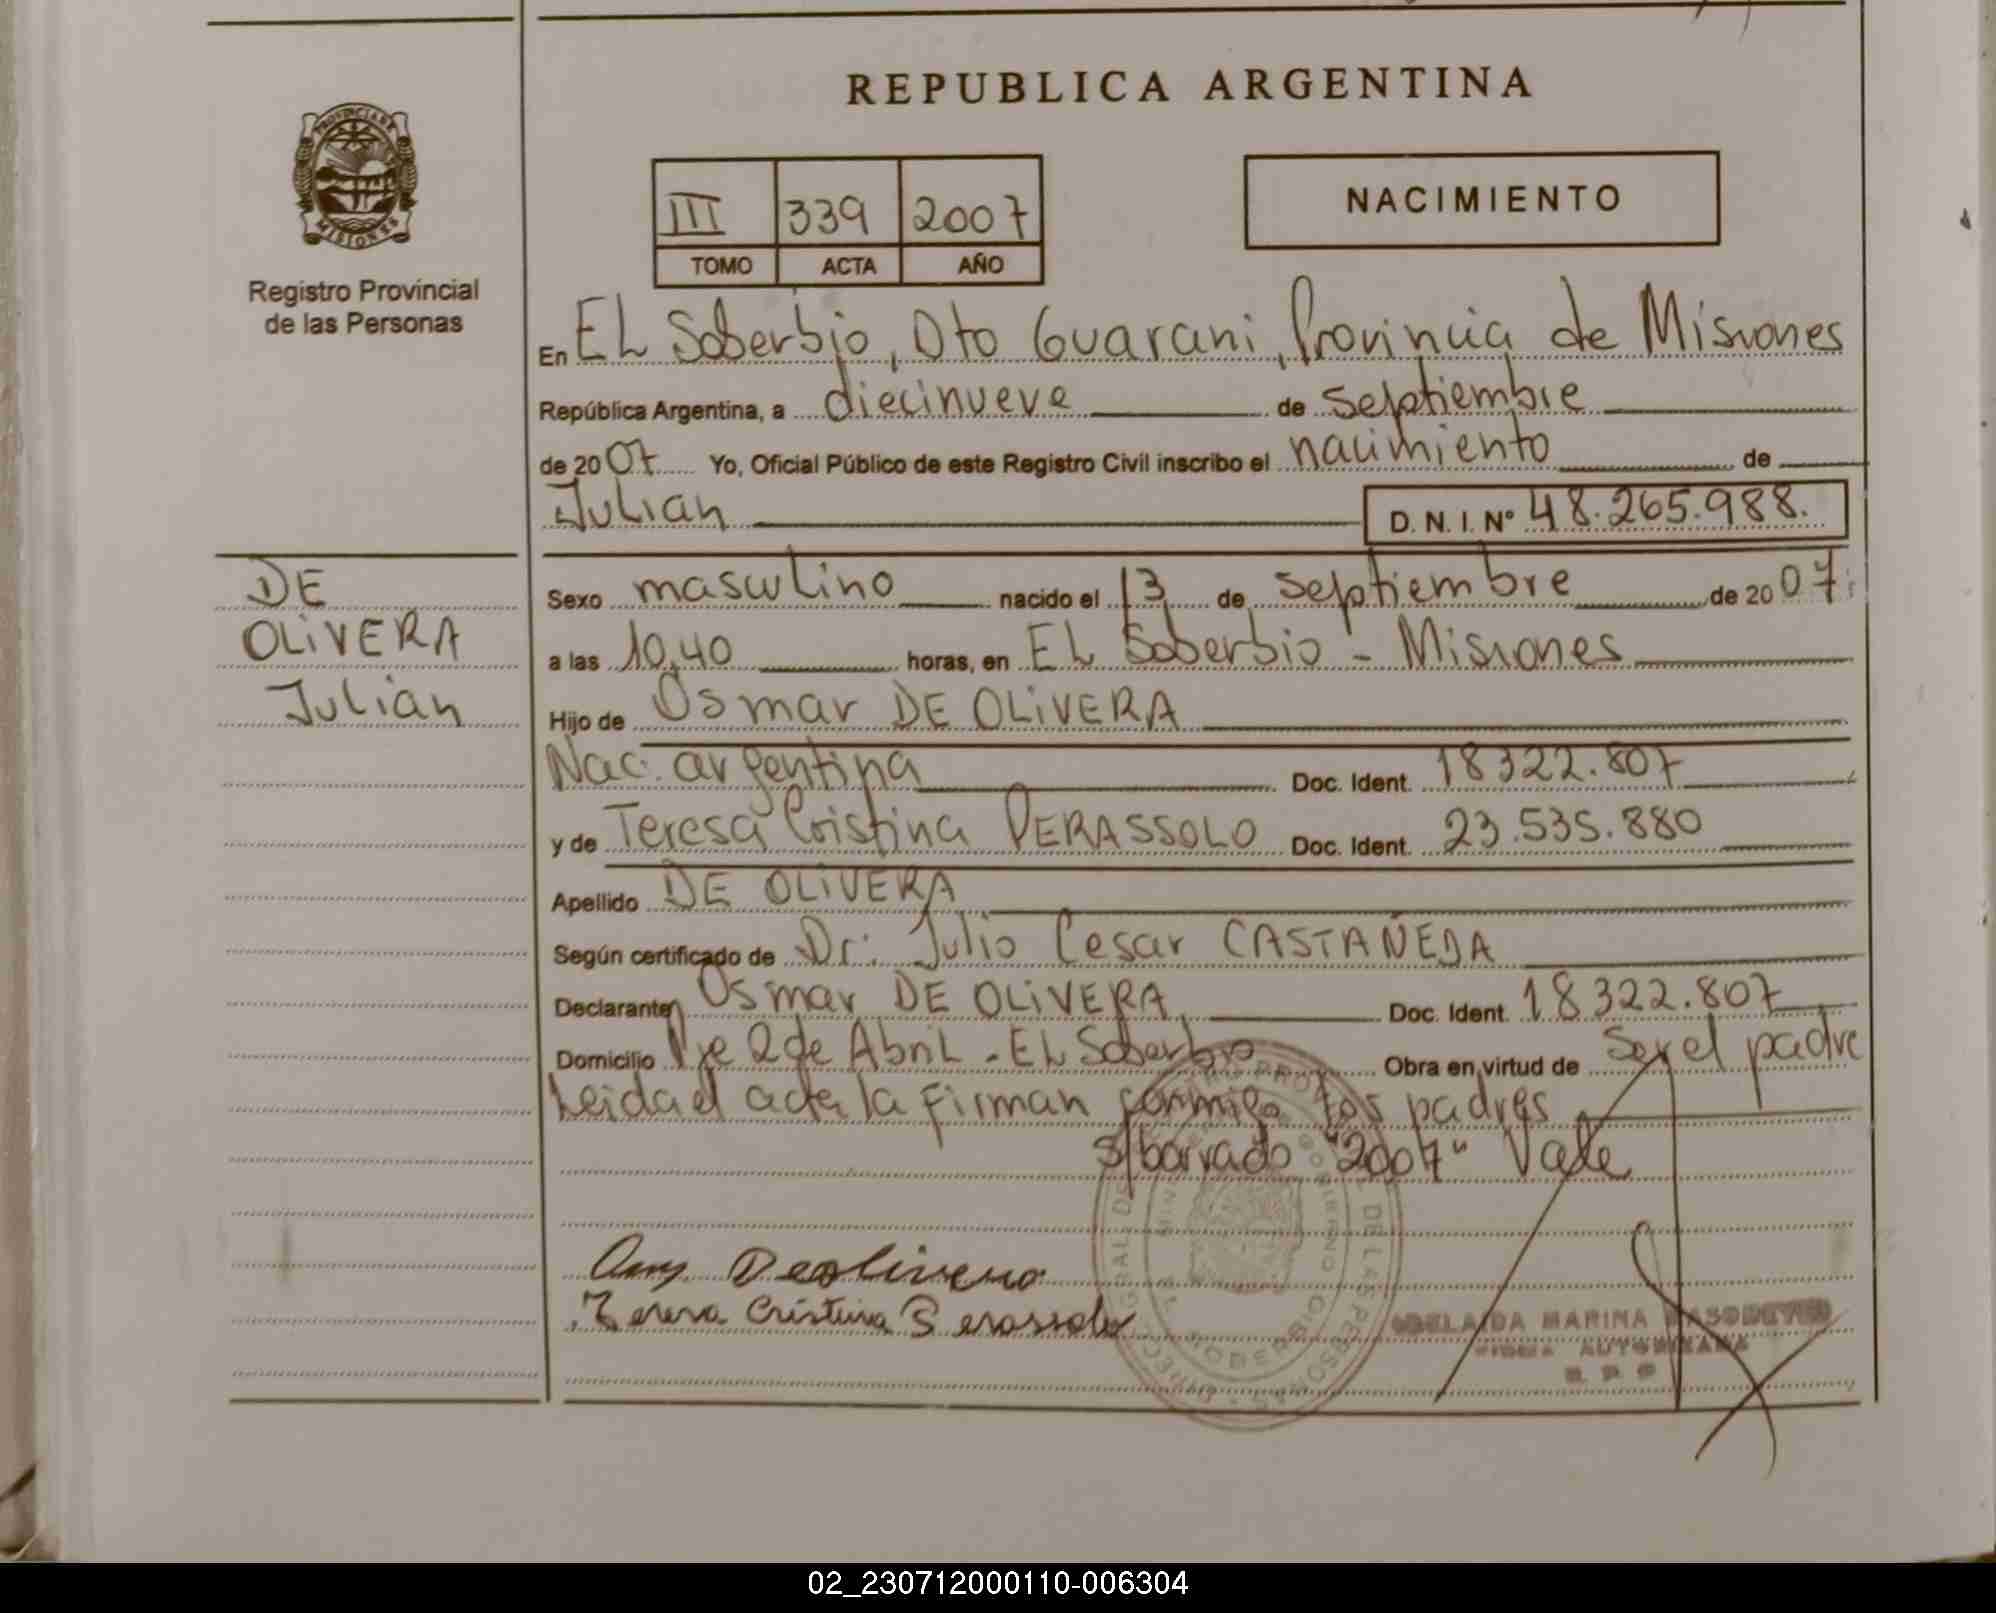 REPUBLICA ARGENTINA
PROVINCIA DE
MISIONES
Registro Provincial
de las Personas
III 339 2007
TOMO ACTA AÑO
NACIMIENTO
En EL Soberbio, Dto Guarani, Provincia de Misiones
República Argentina, a diecinueve de Septiembre
de 2007 Yo, Oficial Público de este Registro Civil inscribo el nacimiento de
Julian D.N.I. Nº 48.265.988.
DE
OLiVERA
Julian
Sexo masculino nacido el 13 de Septiembre de 2007
a las 10,40 horas, en EL Soberbio - Misiones
Hijo de Osmar DE OLiVERA
Nac. argentina Doc. Ident. 18322.807
y de Teresa Cristina PERASSOLO Doc. Ident. 23.535.880
Apellido DE OLiVERA
Según certificado de Dr. Julio Cesar CASTAÑEDA
Declarante Osmar DE OLiVERA Doc. Ident. 18322.807
Domicilio Pje 2 de Abril - EL Soberbio Obra en virtud de Ser el padre
Leida el acta la Firman conmigo los padres
s/borrado "2007" Vale
Deolivera
Teresa Cristina Perassolo
ADELAIDA MARINA
AUTORIZADA
R P P
02_230712000110-006304